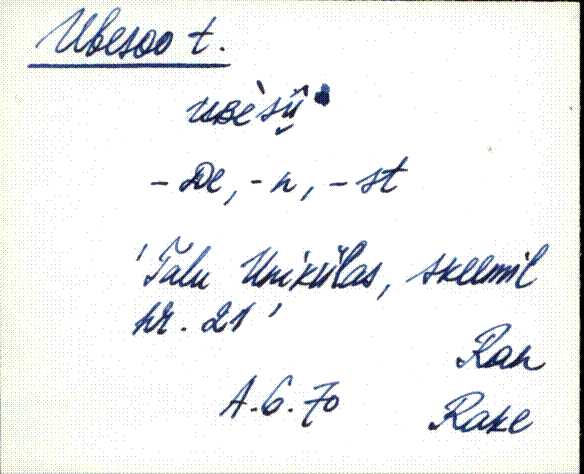 Ubesoo t.
-De, -n, -st
'Talu Uniküla, skeemil
nr. 21'
Ran
A.G.70 Rake